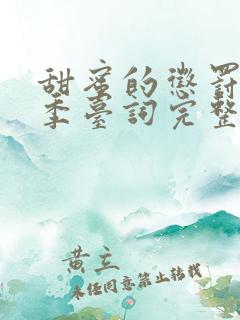 甜蜜的懲罰
季臺詞完整
黄立
未任同意禁止转载